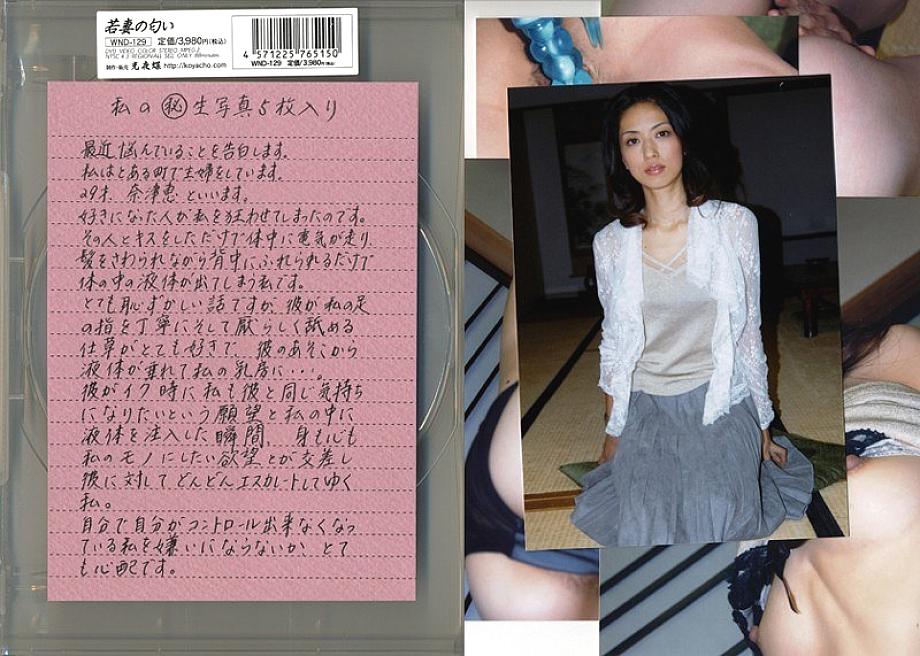 若妻の匂い
WND-129 定価/3,980円(税込)
DVD VIDEO COLOR STEREO MPEG-2
制作・販売 光夜蝶 http://koyacho.com
4 571225 765150
WND-129 定価/3,980円(税込)
私の㊙生写真5枚入り
最近悩んでいることを告白します。
私はとある町で主婦をしています。
29才 奈津恵といいます。
好きになった人が私を狂わせてしまったのです。
その人とキスをしただけで体中に電気が走り、
髪をさわられながら背中にふれられるだけで
体の中の液体が出てしまう私です。
とても恥ずかしい話ですが、彼が私の足
の指を丁寧にそして厭らしく舐める
仕草がとても好きで、彼のあそこから
液体が垂れて私の乳房に・・・。
彼がイク時に私も彼と同じ気持ち
になりたいという願望と私の中に
液体を注入した瞬間、身も心も
私のモノにしたい欲望とが交差し
彼に対してどんどんエスカレートしてゆく
私。
自分で自分がコントロール出来なくなっ
ている私を嫌いにならないか、とて
も心配です。